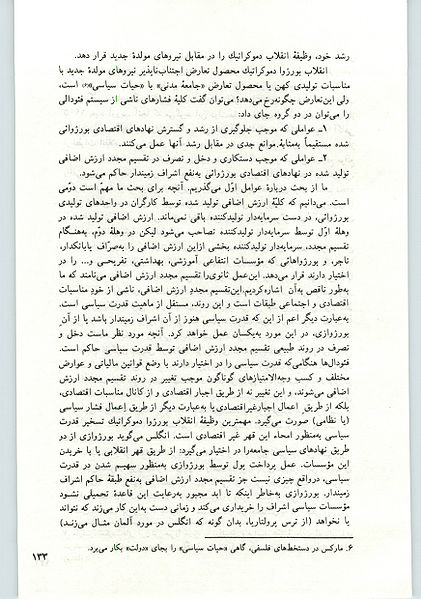 رشد خود، وظیفهٔ انقلاب دموکراتیك را در مقابل نیروهای مولدهٔ جدید قرار دهد.
انقلاب بورژوا دموکراتیك محصول تعارض اجتناب‌ناپذیر نیروهای مولدهٔ جدید با
مناسبات تولیدی کهن یا محصول تعارض «جامعهٔ مدنی» با «حیات سیاسی»(۶) است،
ولی این‌تعارض چگونه‌رخ می‌دهد؟ می‌توان گفت کلیهٔ فشارهای ناشی از سیستم فئودالی
را می‌توان در دو گروه جای داد:
۱ـ عواملی که موجب جلوگیری از رشد و گسترش نهادهای اقتصادی بورژوائی
شده مستقیماً به‌مثابهٔ موانع جدی در مقابل رشد آنها عمل می‌کنند.
۲ـ عواملی که موجب دستکاری و دخل و تصرف در تقسیم مجدد ارزش اضافی
تولید شده در نهادهای اقتصادی بورژوائی به‌نفع اشراف زمیندار حاکم می‌شود.
ما از بحث دربارهٔ عوامل اوّل می‌گذریم. آنچه برای بحث ما مهمّ است دوّمی
است. می‌دانیم که کلیّهٔ ارزش اضافی تولید شده توسط کارگران در واحدهای تولیدی
بورژوائی، در دست سرمایه‌دار تولیدکننده باقی نمی‌ماند. ارزش اضافی تولید شده در
وهلهٔ اوّل توسط سرمایه‌دار تولیدکننده تصاحب می‌شود لیکن در وهلهٔ دوّم، به‌هنگام
تقسیم مجدد، سرمایه‌دار تولیدکننده بخشی ازاین ارزش اضافی را به‌صرّاف یابانکدار،
تاجر، و بورژواهائی که مؤسسات انتفاعی آموزشی، بهداشتی، تفریحی و... را در
اختیار دارند قرار می‌دهد. این‌عمل ثانوی‌را تقسیم مجدد ارزش اضافی می‌نامند که ما
به‌طور ناقص به‌آن اشاره‌کردیم.این‌تقسیم مجددِ ارزش اضافی، ناشی از خود مناسبات
اقتصادی و اجتماعی طبقات است و این روند، مستقل از ماهیت قدرت سیاسی است.
به‌عبارت دیگر اعم از این که قدرت سیاسی هنوز از آن اشراف زمیندار باشد یا از آن
بورژوازی، در این مورد به‌یکسان عمل خواهد کرد. آنچه مورد نظر ماست دخل و
تصرف در روند طبیعی تقسیم مجدد ارزش اضافی توسط قدرت سیاسی حاکم است.
فئودال‌ها هنگامی‌که قدرت سیاسی را در اختیار دارند با وضع قوانین مالیاتی و عوارض
مختلف و کسب وجه‌الامتیازهای گوناگون موجب تغییر در روند تقسیم مجدد ارزش
اضافی می‌شوند، و این تغییر نه از طریق اجبار اقتصادی و از کانال مناسبات اقتصادی،
بلکه از طریق اعمال اجبارغیراقتصادی یا به‌عبارت دیگر از طریق إعمال فشار سیاسی
(یا نظامی) صورت می‌گیرد. مهمترین وظیفهٔ انقلاب بورژوا دموکراتیك تسخیر قدرت
سیاسی به‌منظور امحاء این قهر غیر اقتصادی است. انگلس می‌گوید بورژوازی از دو
طریق نهادهای سیاسی جامعه‌را در اختیار می‌گیرد: از طریق قهر انقلابی یا با خریدن
این مؤسسات. عمل پرداخت پول توسط بورژوازی به‌منظور سهیم شدن در قدرت
سیاسی، درواقع چیزی نیست جز تقسیم مجدد ارزش اضافی به‌نفع طبقهٔ حاکم اشراف
زمیندار. بورژوازی به‌خاطر اینکه تا ابد مجبور به‌رعایت این قاعدهٔ تحمیلی نشود
مؤسسات سیاسی اشراف را خریداری می‌کند و زمانی دست به‌این کار می‌زند که نتواند
یا نخواهد (از ترس پرولتاریا، بدان گونه که انگلس در مورد آلمان مثال می‌زند)
۶ـ مارکس در دستخط‌های فلسفی، گاهی «حیات سیاسی» را بجای «دولت» بکار می‌برد.
۱۳۳